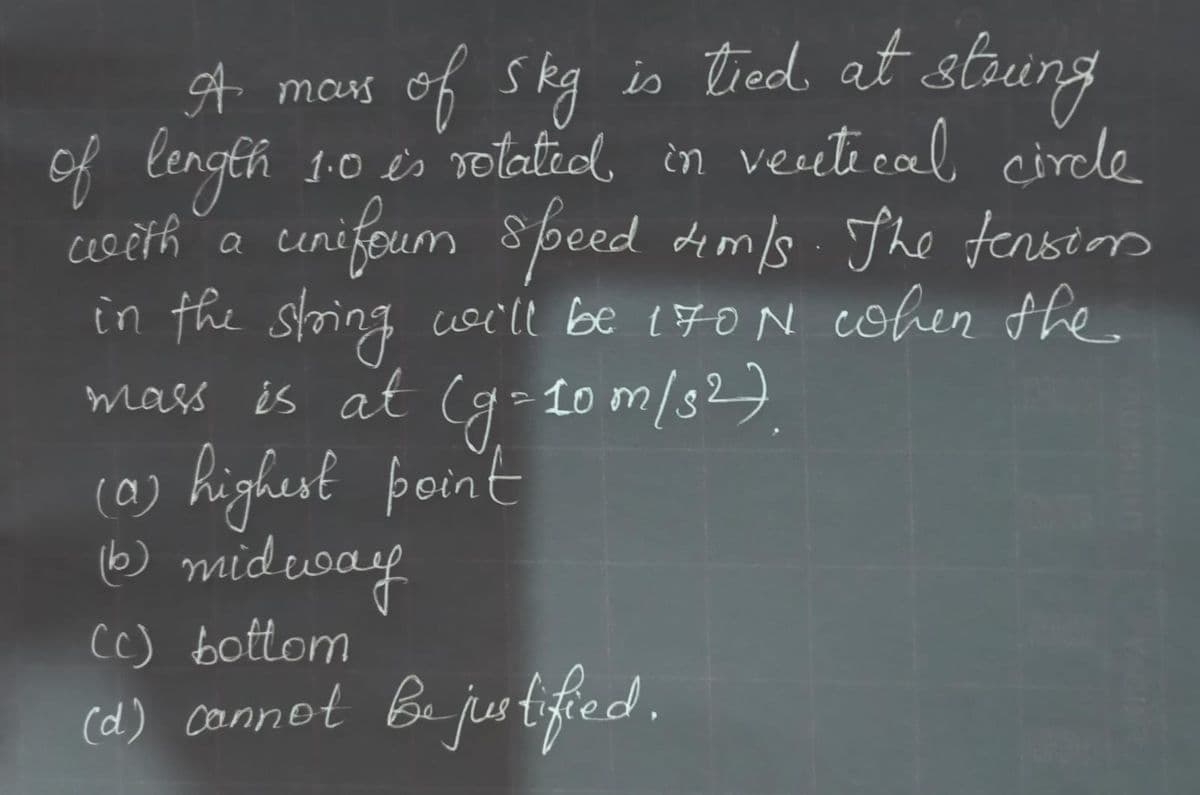 A mass of 5kg is tied at string
of length 1.0 is rotated in vertical circle
with a uniform speed 4m/s. The tension
in the string will be 170 N when the
mass is at (g=10 m/s2).
(a) highest point
(b) midway
(c) bottom
(d) cannot be justified.